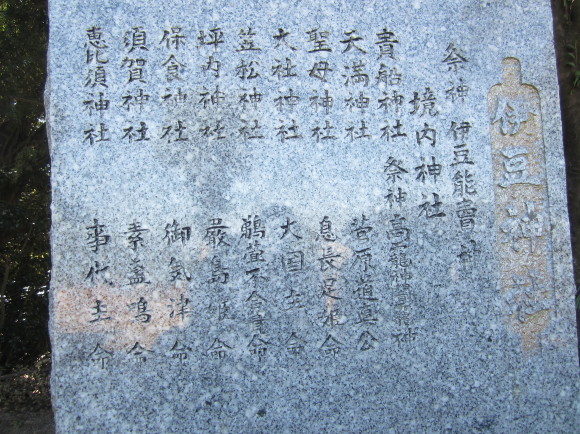 伊豆神社
祭神 伊豆能賣神
境内神社
貴船神社 祭神 高龗神 闇龗神
天満神社 菅原道真公
聖母神社 息長足姫命
大社神社 大国主命
笠松神社 鵜葺不合命
坪内神社 嚴島姫命
保食神社 御気津命
須賀神社 素盞鳴命
恵比須神社 事代主命